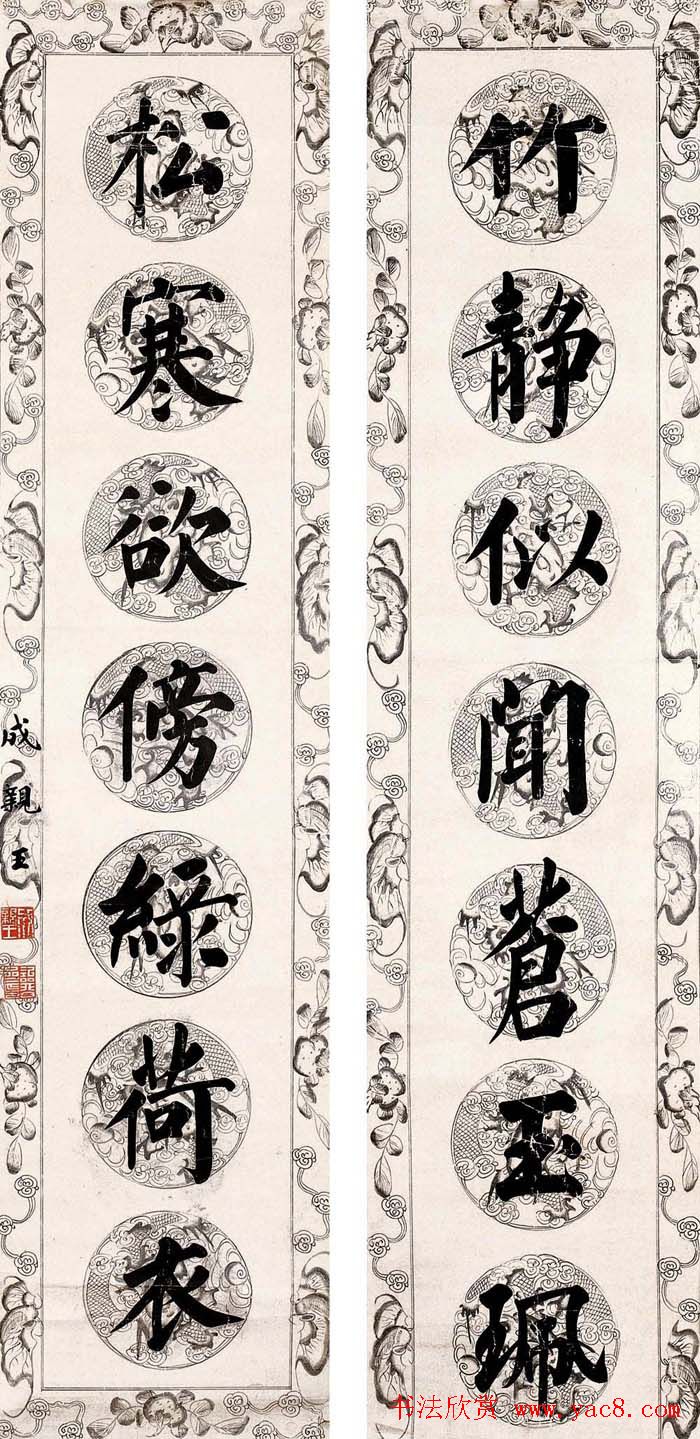 竹静似闻蒼玉珮
松寒欲傍綠荷衣
成親王
书法欣赏 www.yac8.com